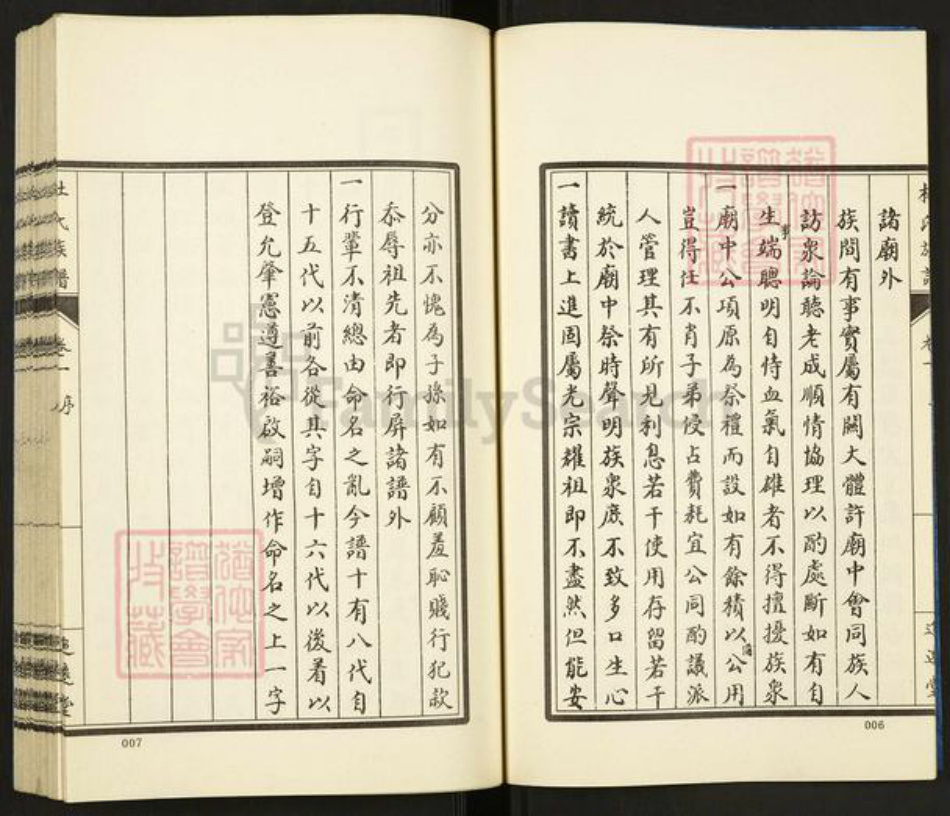 諸廟外
族間有事實屬有關大體許廟中會同族人
訪衆論聽老成順情協理以酌處斷如有自
生事端聰明自恃血氣自雄者不得擅擾族衆
一廟中公項原為祭禮而設如有餘積以備公用
豈得任不肖子弟侵占費耗宜公同酌議派
人管理其有所見利息若干使用存留若干
統於廟中祭時聲明族衆庶不致多口生心
一讀書上進固屬光宗耀祖即不盡然但能安
006
分亦不愧為子孫如有不顧羞恥賤行犯款
忝辱祖先者即行屏諸譜外
一行輩不清總由命名之亂今譜十有八代自
十五代以前各從其字自十六代以後著以
登允肇憲遵善裕啟嗣增作命名之上一字
杜氏族譜 卷一 序
007
FamilySearch